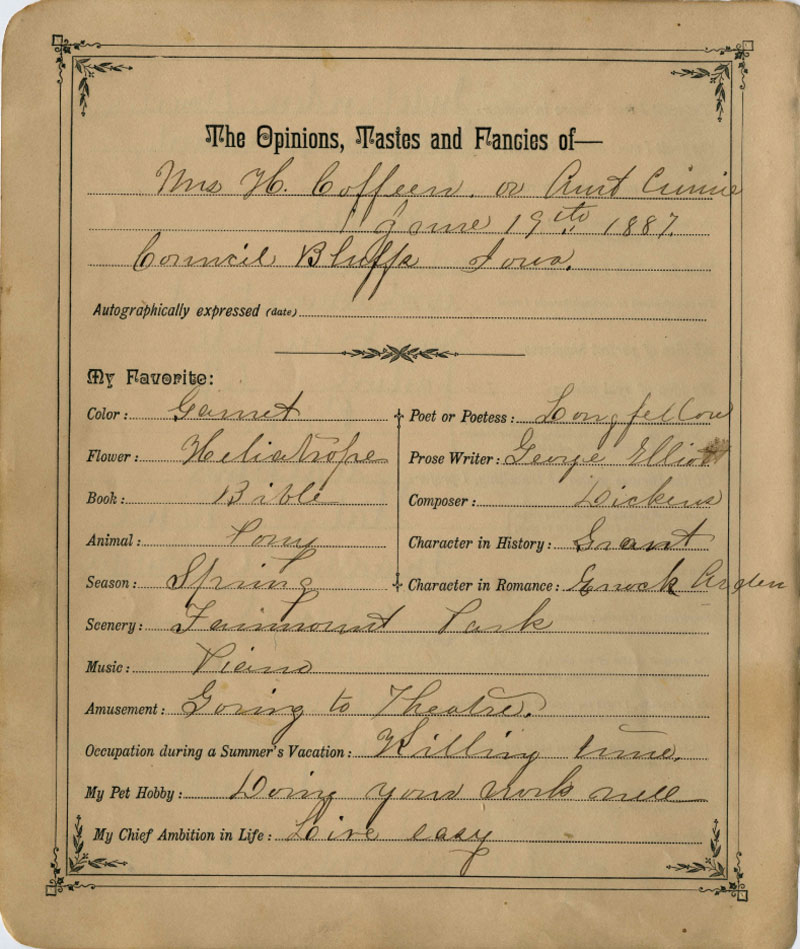 The Opinions, Tastes and Fancies of—
Mrs H. Coffeen. or Aunt Cinnie
June 19th 1887.
Council Bluffs Iowa.
Autographically expressed (date)
My Favorite:
Color: Garnet
Flower: Heliatrope
Book: Bible
Animal: Pony
Season: Spring
Poet or Poetess: Longfellow
Prose Writer: George Elliot
Composer: Dickens
Character in History: Grant
Character in Romance: Enock Arden
Scenery: Fairmount Park
Music: Pieano
Amusement: Going to Theatre.
Occupation during a Summer's Vacation: Killing time.
My Pet Hobby: Doing your work well
My Chief Ambition in Life: Live easy